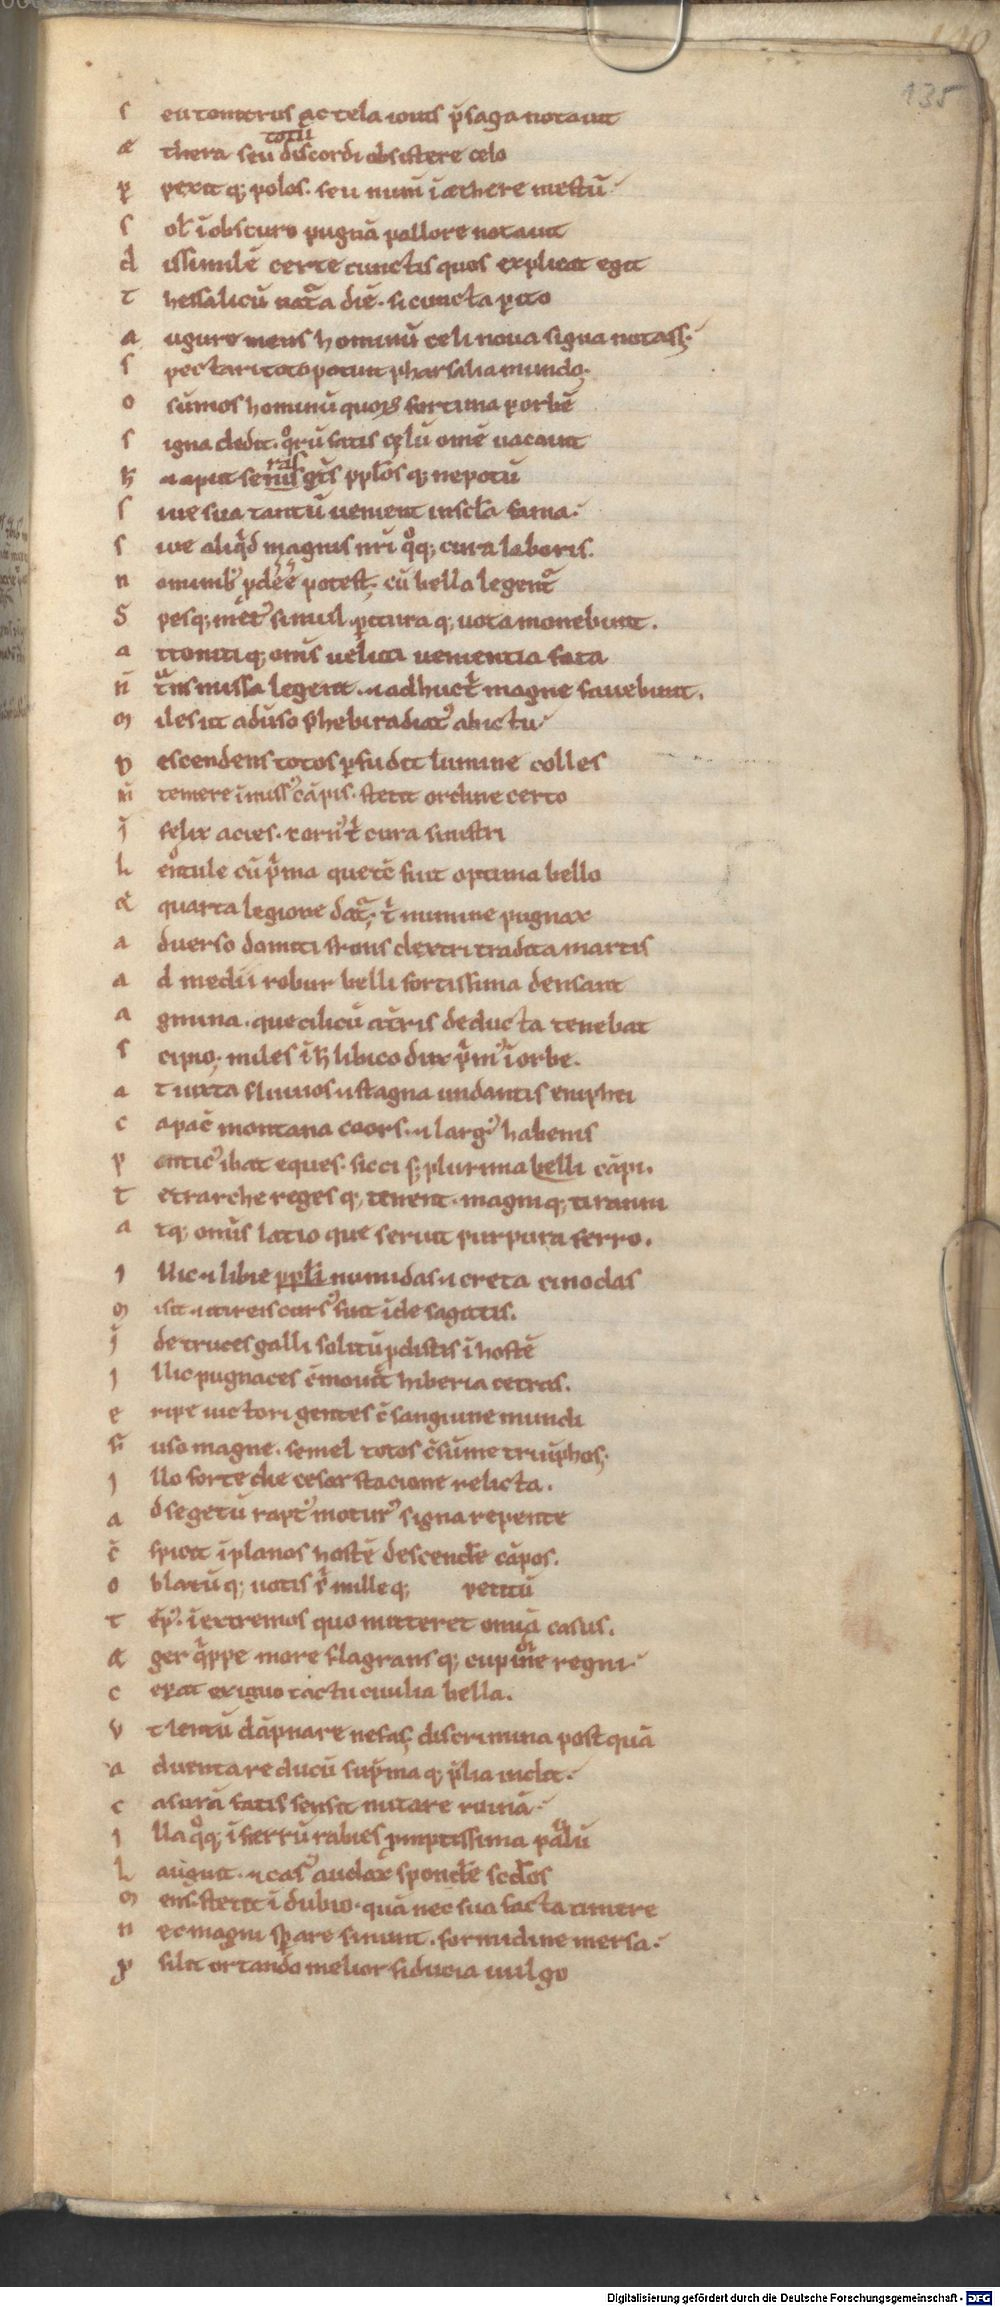 135
s eu tonitrus ac tela iouis p̄saga notauit
totū
æ thera seu discordi obsistere celo
p pexit q; polos. seu numē ī æthere mestū
s ol̄ ī obscuro pugnā pallore notauit
d issimilē certe cunctis quos explicat egit
t hessalicū nat̄a diē. si cuncta p̱ito
a ugure mens hominū celi noua signa notass;
s pectari toto potuit pharsalia mundo.
o sūmos hominū quoꝝ fortuna p̱ orbē
s igna dedit. qͦrū fatis cęlū omē uacauit
ras
h̄ ⁊ aput senus gt̄s ppl̄os q; nepotū
s iue sua tantū uenient ī nscl̄a fama.
s iue aliqͥd magnis nr̄i qͦq; cura laboris.
n ominib; p̱dēē potest; cū bella legent᷑
S pesq; met᷑ simul. p̱itura q; uota mouebunt.
a ttoniti q; om̄s ueluti uenientia fata
n̄ tͣnsmissa legent. ⁊ adhuc tͥ magne fauebunt.
m iles ut adūso phebi radiat᷒ ab ictu
D escendens totos p̱fudit lumine colles
n̄ temere īmiss᷒ cāpis. stetit ordine certo
ī felix acies. corn᷒ tͥ cura sinistri
l entule cū pͥma que tē fuit optima bello
æ quarta legione dat᷑; tͥ numine pugnax
a duerso domiti frons dextri tradita martis
a d medii robur belli fortissima densant
a gmina. que cilicū t̄ris deducta tenebat
s cipio. miles ī h̄ libico dux pͥm᷒ ī orbe.
a t iuxta fluuios ⁊ stagna undantis eniphei
c apac̄ montana coors. ⁊ larg᷒ habenis
p ontic᷒ ibat eques. sicci s; plurima belli cāpi.
t etrarche reges q; tenent. magni q; tiranni
a tq; om̄is latio que seruit purpura ferro.
i lluc ⁊ libie ppl̄i numidas ⁊ creta cinodas
m isit ⁊ itireis curs᷒ fuit īde sagittis.
ī de truces galli solitū p̱distis ī hostē
i llic pugnaces c̄mouit hiberia cetras.
e ripe uictori gentes ⁊ sanguine mundi
f̄ uso magne. semel totos c̄sūme triūphos;
i llo forte die cesar statione relicta.
a d segetū rapt᷒ motur᷒ signa repente
c̄ spicit ī planos hostē descendē cāpos.
o blatū q; uotis sͥ mille q; petitū
t ēp᷒. ī extremos quo mitteret omīa casus.
æ ger qͥppe more flagrans q; cupine regni
c ep̱at exiguo tractu ciuilia bella.
v t lentū dāpnare nefas; discrimina postquā
a duentare ducū sup̄ma q; p̄lia uidit.
c asurā fatis sensit nutare ruinā
i lla qͦq; ī ferrū rabies p̱mptissima paulū
l anguit. ⁊ cas᷒ audax spondē scd̄os
m ens stetit ī dubio. quā nec sua facta timere
n ec magni sp̱are sinunt. formidine mersa.
p silit ortando melior fiducia uulgo
Digitalisierung gefördert durch die Deutsche Forschungsgemeinschaft - DFG